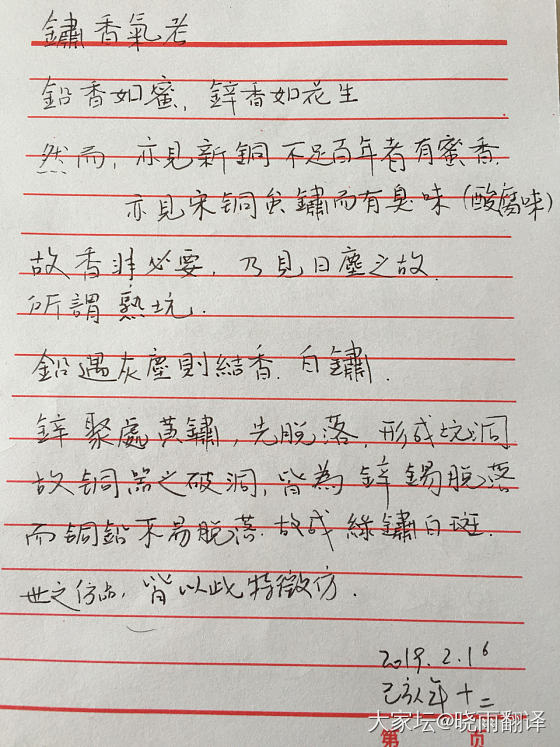 鏽香氣若
鉛香如蜜，鋅香如花生
然而，亦見新銅不足百年者有蜜香
亦見宋铜貟鏽而有臭味（酸腐味）
故香非必要，乃見日塵之故.
所謂熟坑.
鉛遇灰塵則結香.白鏽.
鋅聚處黃鏽，先脫落，形成坑洞
故铜器之破洞，皆為鋅錫脫落
而铜鉛不易脫落.故成綠鏽白斑.
世之仿品，皆以此特徵仿.
2019.2.16
己亥年十二
第 页
大家坛@晓雨翻译